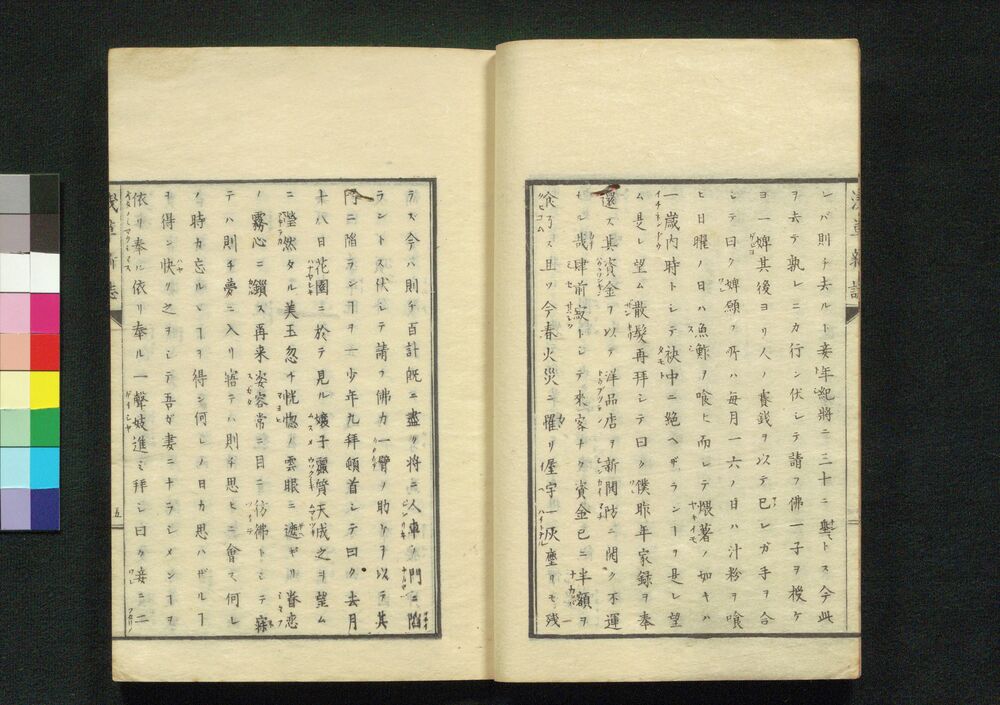 レバ則チ去ルト妾年紀將ニ三十ニ埀トス今此
ヲ去テ孰レニカ行ン伏シテ請フ佛一子ヲ授ケ
ヨ一婢其後ヨリ人ノ賽錢ヲ以テ己レガ手ヲ合
シテ曰ク婢願フ所ハ毎月一六ノ日ハ汁粉ヲ喰
ヒ日曜ノ日ハ魚鮓ヲ喰ヒ而シテ煨薯ノ如キハ
一歳内時トシテ袂中ニ絶ヘザランヿヲ是レ望
ム是レ望ム散髪再拜シテ曰ク僕昨年家録ヲ奉
還ス其資金ヲ以テ洋品店ヲ新開町ニ開ク不運
ナル哉肆前寂トシテ來客ナク資金已ニ半額ヲ
食了ス且ツ今春火災ニ罹リ屋宇一灰塵リモ残
ラズ今ハ則チ百計既ニ盡ク將ニ人車ノ門ニ陷
ラントス伏シテ請フ佛カ一臂ノ助ケヲ以テ其
門ニ陷ランヿヲ一少年九拜頓首シテ曰ク去月
十八日花園ニ於テ見ル孃子靈質天成之ヲ望ム
ニ瑩然タル美玉忽チ恍惚ノ雲眼ニ遮ヤリ眷恋
ノ霧心ニ鎻ス再来姿容常ニ目ニ彷彿トシテ寐
テハ則チ夢ニ入リ寤テハ則チ思ヒニ會ス何レ
ノ時カ忘ルヽヿヲ得ン何レノ日カ思ハザルヿ
ヲ得ン快ク之ヲシテ吾ガ妻ニナラシメンヿヲ
依リ奉ル依リ奉ル一聲妓進ミ拜シ曰ク妾ニ二
五